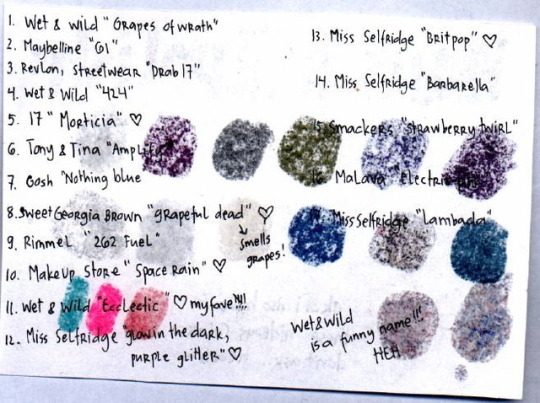 1. Wet & wild "Grapes of wrath"
2. Maybelline "G1"
3. Revlon, Streetwear "Drab 17"
4. Wet & Wild "424"
5. 17 "Morticia" ♡
6. Tony & Tina
7. Gosh "Nothing blue
8. Sweet Georgia Brown "grapeful dead" ♡
↘ smells
grapes!
9. Rimmel "262 Fuel"
10. Makeup Store "Space Rain" ♡
11. Wet & Wild "Ecclectic" ♡ my fave!!!!
12. Miss Selfridge glow in the dark,
purple glitter" ♡
13. Miss Selfridge "Britpop" ♡
14. Miss Selfridge "Barbarella"
15. Smackers "Strawberry twirl"
Malava "Electric
Miss Selfridge "Lambada"
Wet & Wild
is a funny name!!!
HEH